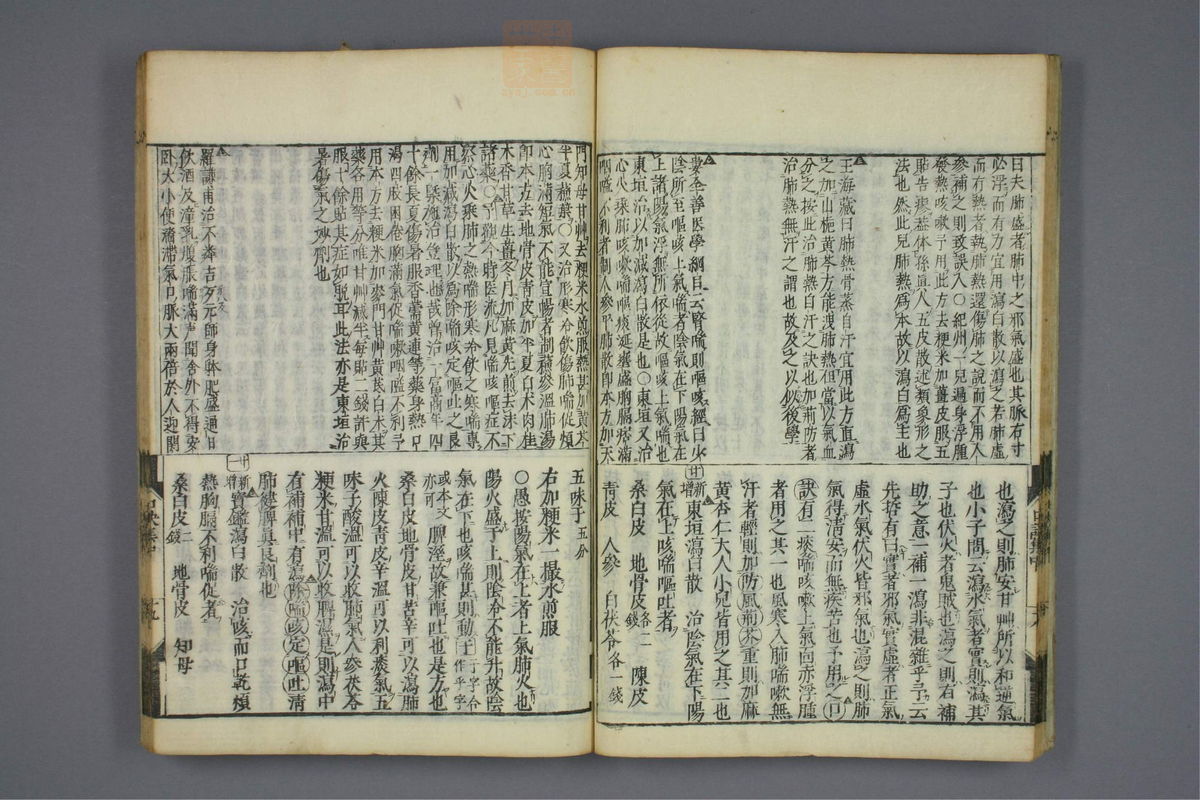 曰夫肺盛者肺中之邪氣盛也其脈右寸
必浮而有力宜用瀉白散以瀉之若肺虛
而有熱者執肺熱還傷肺之說而不用人
參補之則致誤人○紀州一兒遍身浮腫
發熱咳嗽予用此方去粳米加薑皮服五
貼告瘥蓋体係直入五皮散述類象形之
法也然此兒肺熱為本故以瀉白為主也
王海藏曰肺熱骨蒸自汗宜用此方直瀉
之加山梔黃芩方能洩肺熱但當以氣血
分之按此治肺熱自汗之訣也加荊防者
治肺熱無汗之謂也故及之以似後學
婁全善医學綱目云腎喘則嘔咳經曰少
陰所至嘔咳上氣喘者陰氣在下陽氣在
上諸陽氣浮無所依從故嘔咳上氣喘也
東垣治以加減瀉白散是也○東垣又治
心火乘肺咳嗽喘嘔痰延壅盛胸膈痞滿
咽嗌不利者制人參平肺散即本方加天
也瀉之則肺安甘艸所以和逆氣
也小子問云瀉水氣者實則瀉其
子也伏火者鬼賊也瀉之則有補
助之意一補一瀉非混雜乎予云
先哲有曰實者邪氣實虛者正氣
虛水氣伏火皆邪氣也瀉之則肺
氣得清安而無疾苦也予用之口
訣有二痰喘嗽上氣面赤浮腫
者用之其一也風寒入肺喘嗽無
汗者輕則加防風荊芥重則加麻
黃杏仁大人小兒皆用之其二也
新增東垣瀉白散 治陰氣在下陽
氣在上咳喘嘔吐者
桑白皮 地骨皮各二錢 陳皮
青皮 人參 白茯苓各一錢
門知母甘艸去粳米水煎服熱甚加黃芩
半夏蘇葉○又治形寒冷飲傷肺喘促煩
心胸滿短氣不能宣暢者制蘇參溫肺湯
即本方去地骨皮青皮加半夏白术肉桂
木香甘草生薑冬月加麻黃先煎去沫下
諸藥○予觀今時医流凡見喘咳嘔症不
察心火乘肺之熱喘形寒冷飲之寒喘專
用加減瀉白散以為除喘咳定嘔吐之良
劑一槩施治豈理也哉曾治一富商年四
十餘長夏傷暑服香薷黃連等藥身熱口
渴四肢困倦胸滿氣促喘嗽咽嗌不利予
用本方去粳米加麥門甘艸黃芪白米其
藥各用等分唯甘艸減半每貼二錢許與
服十餘貼其症如脫耳此法亦是東垣治
暑傷氣之妙劑也
羅謙甫治不𪧐吉歹元帥身体肥盛過日
飲酒及潼乳腹脹喘滿声聞舍外不得安
卧大小便濇滯氣口脈大兩倍於人迎関
五味子五分
右加粳米一撮水煎服
○愚按陽氣在上者上氣肺火也
陽火盛于上則陰夯不能升故陰
氣在下也咳喘甚則動
或本文亦可 脾溼故兼嘔吐也是方也
桑白皮地骨皮甘苦辛可以瀉肺
火陳皮青皮辛溫可以利痰氣五
味子酸溫可以收肺氣人參茯苓
粳米甘溫可以收脾濕是則瀉中
有補補中有瀉除喘咳定嘔吐清
肺健脾眞良劑也
新增寶鑑瀉白散 治咳而口乾煩
熱胸膈不利喘促者
桑白皮二錢 地骨皮 知母